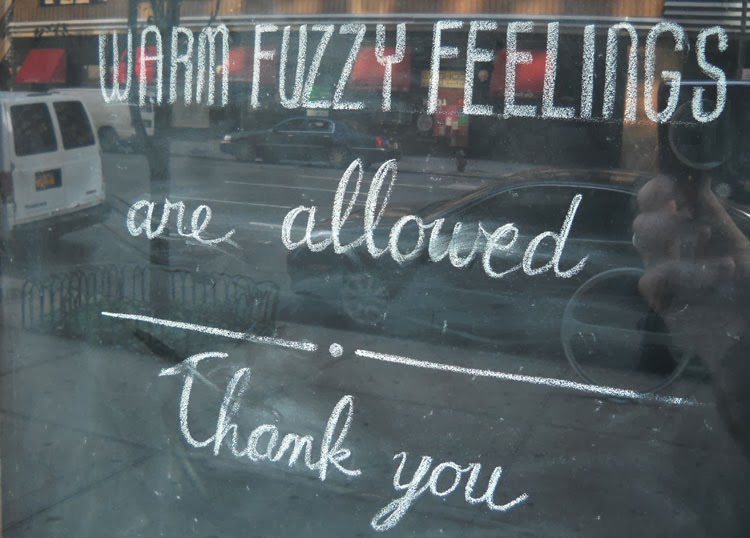 WARM FUZZY FEELINGS
are allowed
Thank you